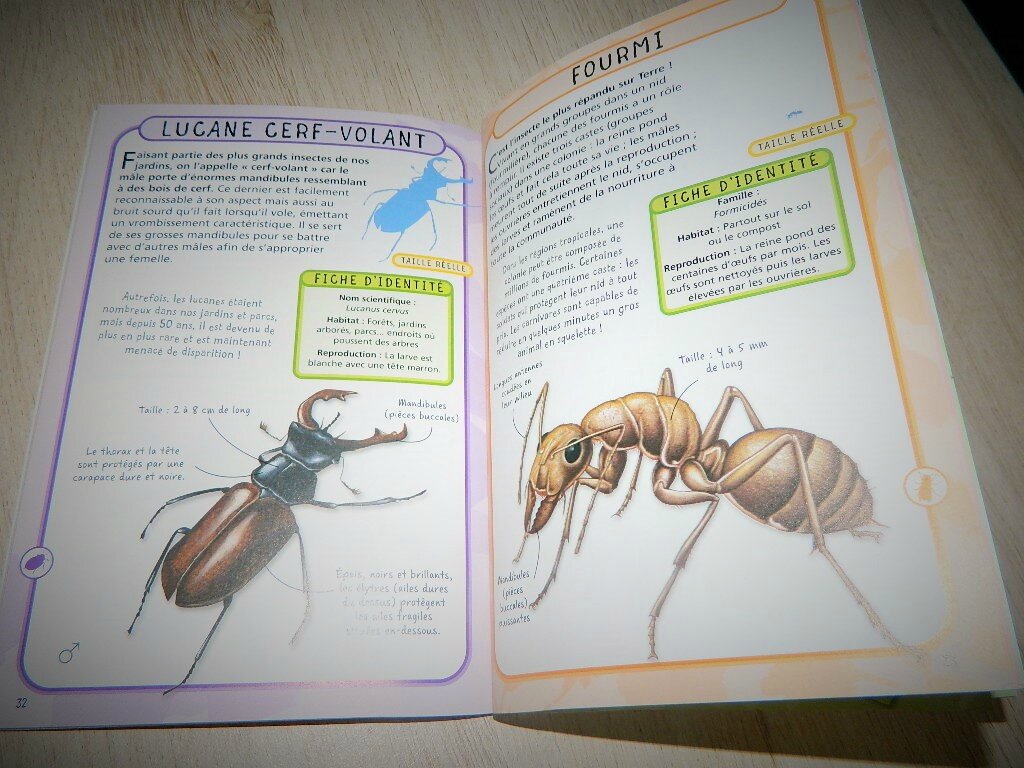 LUCANE CERF-VOLANT
Faisant partie des plus grands insectes de nos
jardins, on l'appelle « cerf-volant » car le
mâle porte d'énormes mandibules ressemblant
à des bois de cerf. Ce dernier est facilement
reconnaissable à son aspect mais aussi au
bruit sourd qu'il fait lorsqu'il vole, émettant
un vrombissement caractéristique. Il se sert
de ses grosses mandibules pour se battre
avec d'autres mâles afin de s'approprier
une femelle.
TAILLE RÉELLE
Autrefois, les lucanes étaient
nombreux dans nos jardins et parcs,
mais depuis 50 ans, il est devenu de
plus en plus rare et est maintenant
menacé de disparition !
FICHE D'IDENTITÉ
Nom scientifique :
Lucanus cervus
Habitat : Forêts, jardins
arborés, parcs... endroits où
poussent des arbres
Reproduction : La larve est
blanche avec une tête marron.
Taille : 2 à 8 cm de long
Mandibules
(pièces buccales)
Le thorax et la tête
sont protégés par une
carapace dure et noire.
Épais, noirs et brillants,
les élytres (ailes dures
du dessus) protègent
les ailes fragiles
situées en-dessous.
32
FOURMI
C'est l'insecte le plus répandu sur Terre !
Vivant en grands groupes dans un nid
chacune des fourmis a un rôle
Il existe trois castes (groupes
dans une colonie : la reine pond
les œufs et fait cela toute sa vie ; les mâles
meurent tout de suite après la reproduction ;
les ouvrières entretiennent le nid, s'occupent
des larves et ramènent de la nourriture à
toute la communauté.
TAILLE RÉELLE
Dans les régions tropicales, une
colonie peut être composée de
millions de fourmis. Certaines
espèces ont une quatrième caste : les
soldats qui protègent leur nid à tout
prix. Les carnivores sont capables de
réduire en quelques minutes un gros
animal en squelette !
FICHE D'IDENTITÉ
Famille :
Formicidés
Habitat : Partout sur le sol
ou le compost
Reproduction : La reine pond des
centaines d'œufs par mois. Les
œufs sont nettoyés puis les larves
élevées par les ouvrières.
Longues antennes
coudées en
leur milieu
Taille : 4 à 5 mm
de long
Mandibules
(pièces
buccales)
puissantes